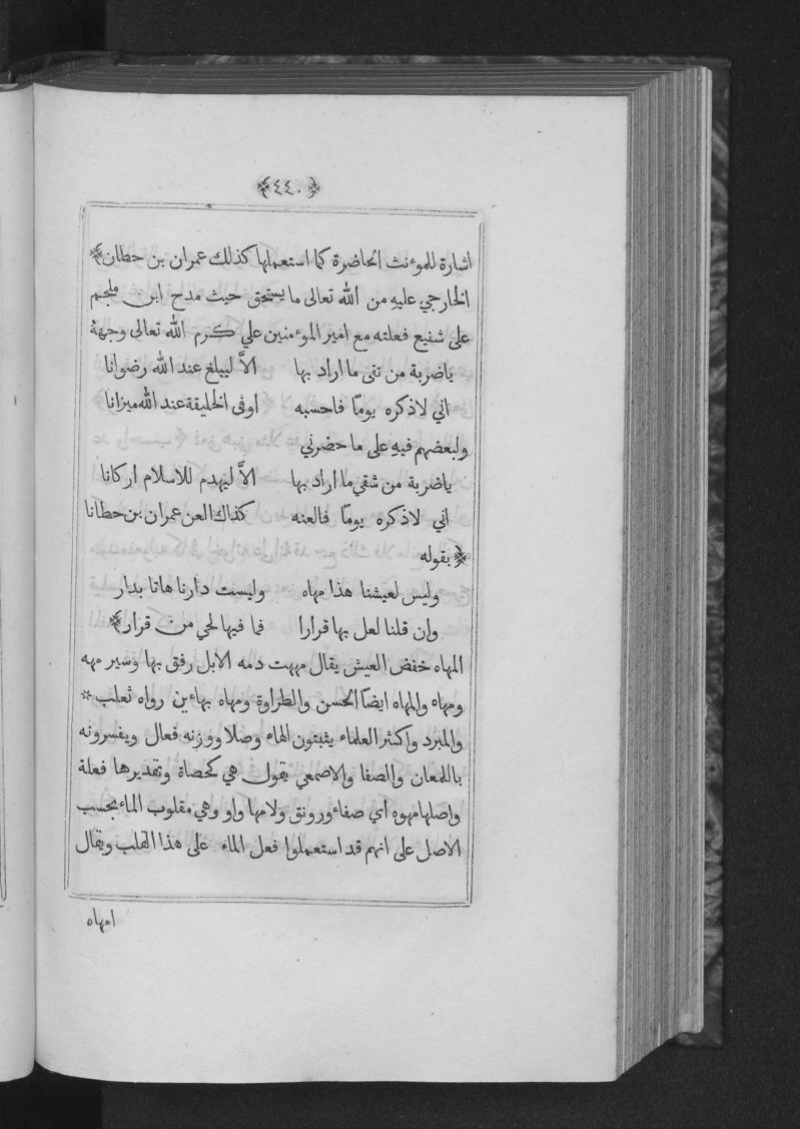 ﴿٤٤٠﴾
اشارة للموٴنث الحاضرة كما استعملها كذلك عمران بن حطان﴾
الخارجي عليه من الله تعالى ما يستحق حيث مدح ابن ملجم
على شفيع فعلته مع امير الموٴمنين علي كرم الله تعالى وجههُ
ياضربة من تقى ما اراد بها الاَّ ليبلغ عند الله رضوانا
اني لاذكره يومًا فاحسبه اوفى الخليقة عند الله ميزانا
ولبعضهم فيه على ما حضرني
ياضربة من شقي ما اراد بها الاَّ ليهدم للاسلام اركانا
اني لاذكره يومًا فالعنه كذاك العن عمران بن حطانا
﴿ بقوله
وليس لعيشنا هذا مهاه وليست دارنا هاتا بدار
وان قلنا لعل بها قرارا فما فيها لحي من قرار﴾
المهاه خفض العيش يقال مههت دمه الابل رفق بها وسير مهه
ومهاه والمهاه ايضًا الحسن والطراوة ومهاه بهاءين رواه ثعلب *
والمبرد واكثر العلماء يثبتون الهاء وصلا ووزنه فعال ويفسرونه
باللمعان والصفا والاصمعي يقول هي كحصاة وتقديرها فعلة
واصلها مهوه اي صفاء ورونق ولامها واو وهي مقلوب الماء بحسب
الاصل على انهم قد استعملوا فعل الماء على هذا القلب ويقال
امهاه